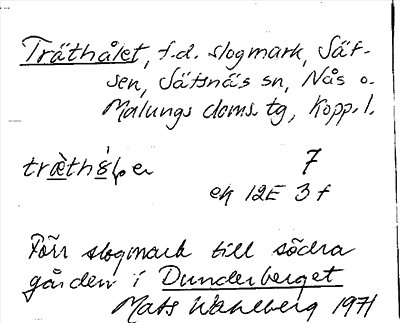 Träthålet, f.d. slogmark, Säf-
sen, Säfsnäs sn, Nås o.
Malungs doms.tg, Kopp.l.
7
ek 12E 3f
Förr slogmark till södra
gården i Dunderberget
Mats Wahlberg 1971